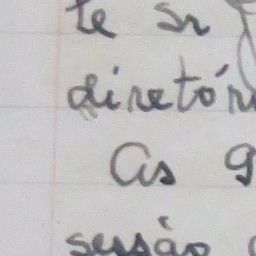 te Sr
diretór
As 9
sessão